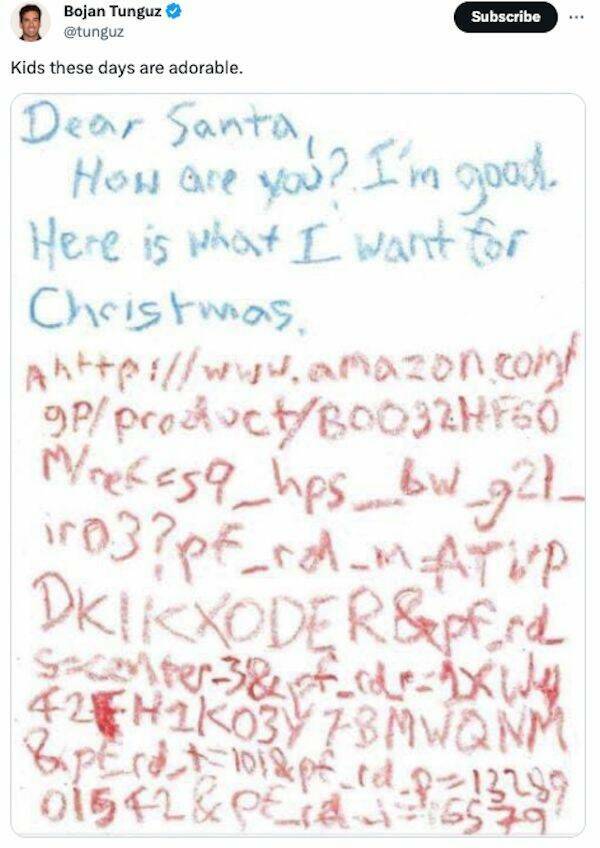 Bojan Tunguz
@tunguz
Subscribe
Kids these days are adorable.
Dear Santa,
How are you? I'm good.
Here is what I want for
Christmas.
A http://www.amazon.com/
gp/product/B0032HF60
M/ref=s9_hps_bw_g21_
ir03?pf_rd_m=ATVP
DKIKX0DER&pf_rd_
s=center-3&pf_rd_r=1XWY
42FH1K03Y7BMWQNM
&pf_rd_t=101&pf_rd_p=13289
01542&pf_rd_i=16579